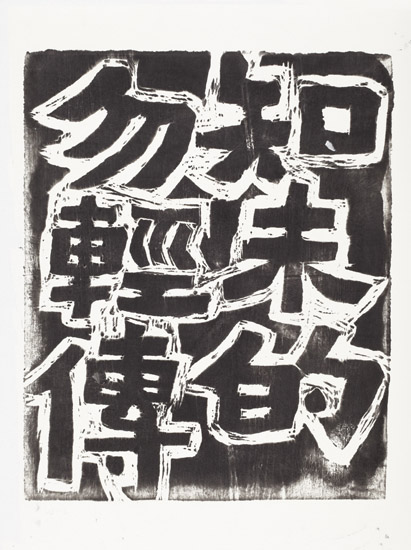 知未的
勿輕傳